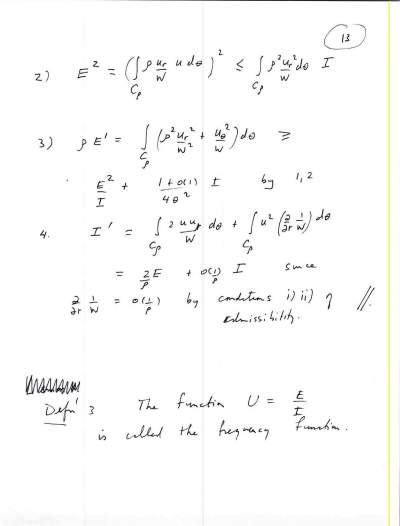 13
2) E² = (∫_{Cρ} ρ u_r/W u dθ)² ≤ ∫_{Cρ} ρ² u_r²/W dθ I
3) ρ E' = ∫_{Cρ} (ρ² u_r²/W² + u_θ²/W) dθ ≥
E²/I + (1 + o(1))/(4θ²) I by 1, 2
4. I' = ∫_{Cρ} 2 u u_r/W dθ + ∫_{Cρ} u² (∂/∂r 1/W) dθ
= 2/ρ E + o(1/ρ) I since
∂/∂r 1/W = o(1/ρ) by conditions i) ii) of //.
admissibility.
Defn' 3 The function U = E/I
is called the frequency function.